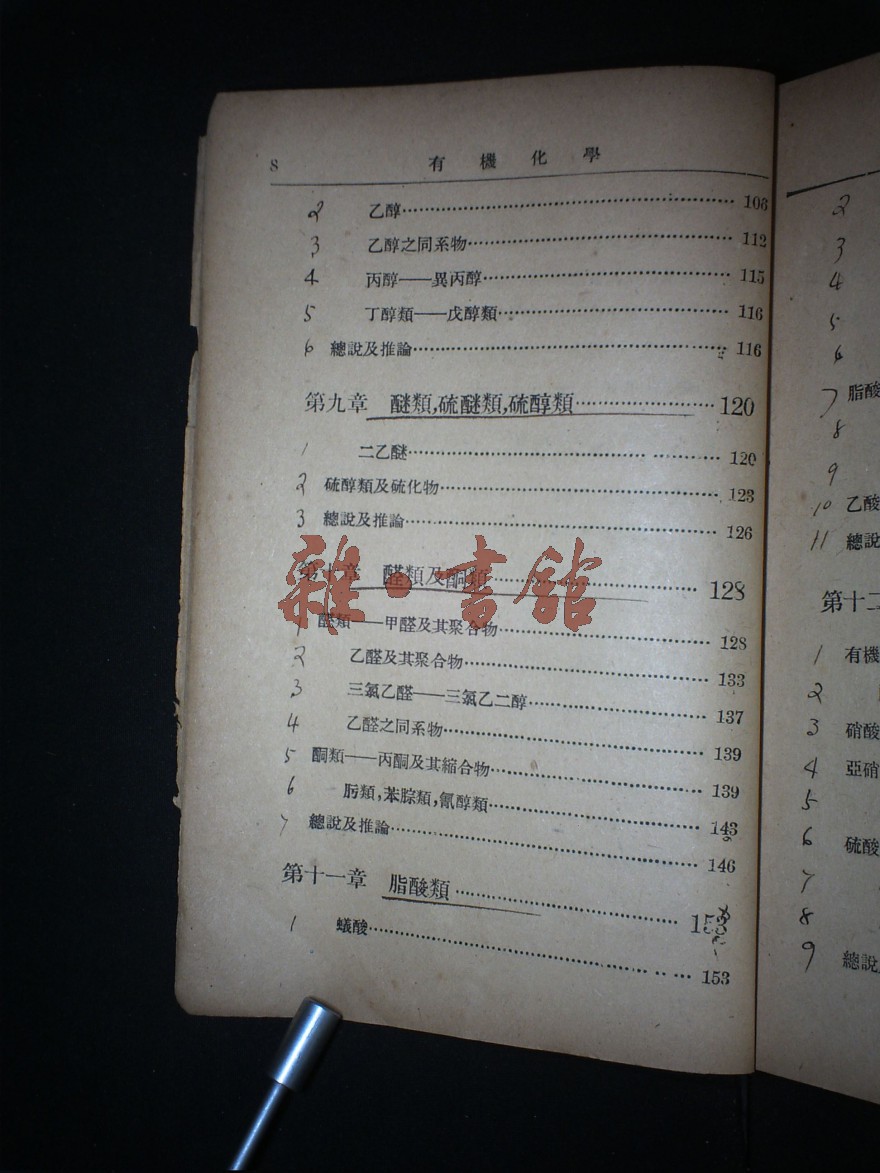 8 有機化學
2 乙醇 106
3 乙醇之同系物 112
4 丙醇——異丙醇 115
5 丁醇類——戊醇類 116
6 總說及推論 116
第九章 醚類,硫醚類,硫醇類 120
1 二乙醚 120
2 硫醇類及硫化物 123
3 總說及推論 126
第十章 醛類及酮類 128
1 醛類——甲醛及其聚合物 128
2 乙醛及其聚合物 133
3 三氯乙醛——三氯乙二醇 137
4 乙醛之同系物 139
5 酮類——丙酮及其縮合物 139
6 肟類,苯腙類,氰醇類 143
7 總說及推論 146
第十一章 脂酸類 153
1 蟻酸 153
雜·書館
2
3
4
5
6
7 脂酸
8
9
10 乙酸
11 總說
第十二
1 有機
2
3 硝酸
4 亞硝
5
6 硫酸
7
8
9 總說